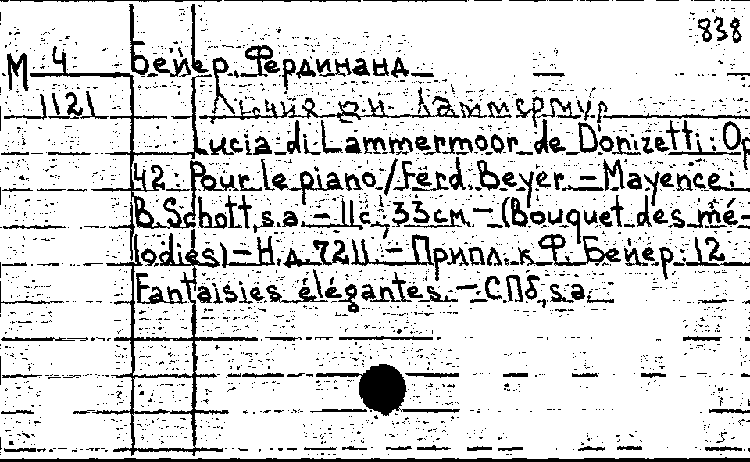 838
М 4 Бейер, Фердинанд
1121 Лючия ди Ламмермур
Lucia di Lammermoor de Donizetti: Op
42: Pour le piano/Ferd. Beyer. – Mayence:
B. Schott, s.a. – 11с.; 33см – (Bouquet des mé-
lodies) – Н.д. 7211 – Припл. к Ф. Бейер: 12
Fantaisies élégantes. – СПб, s.a.